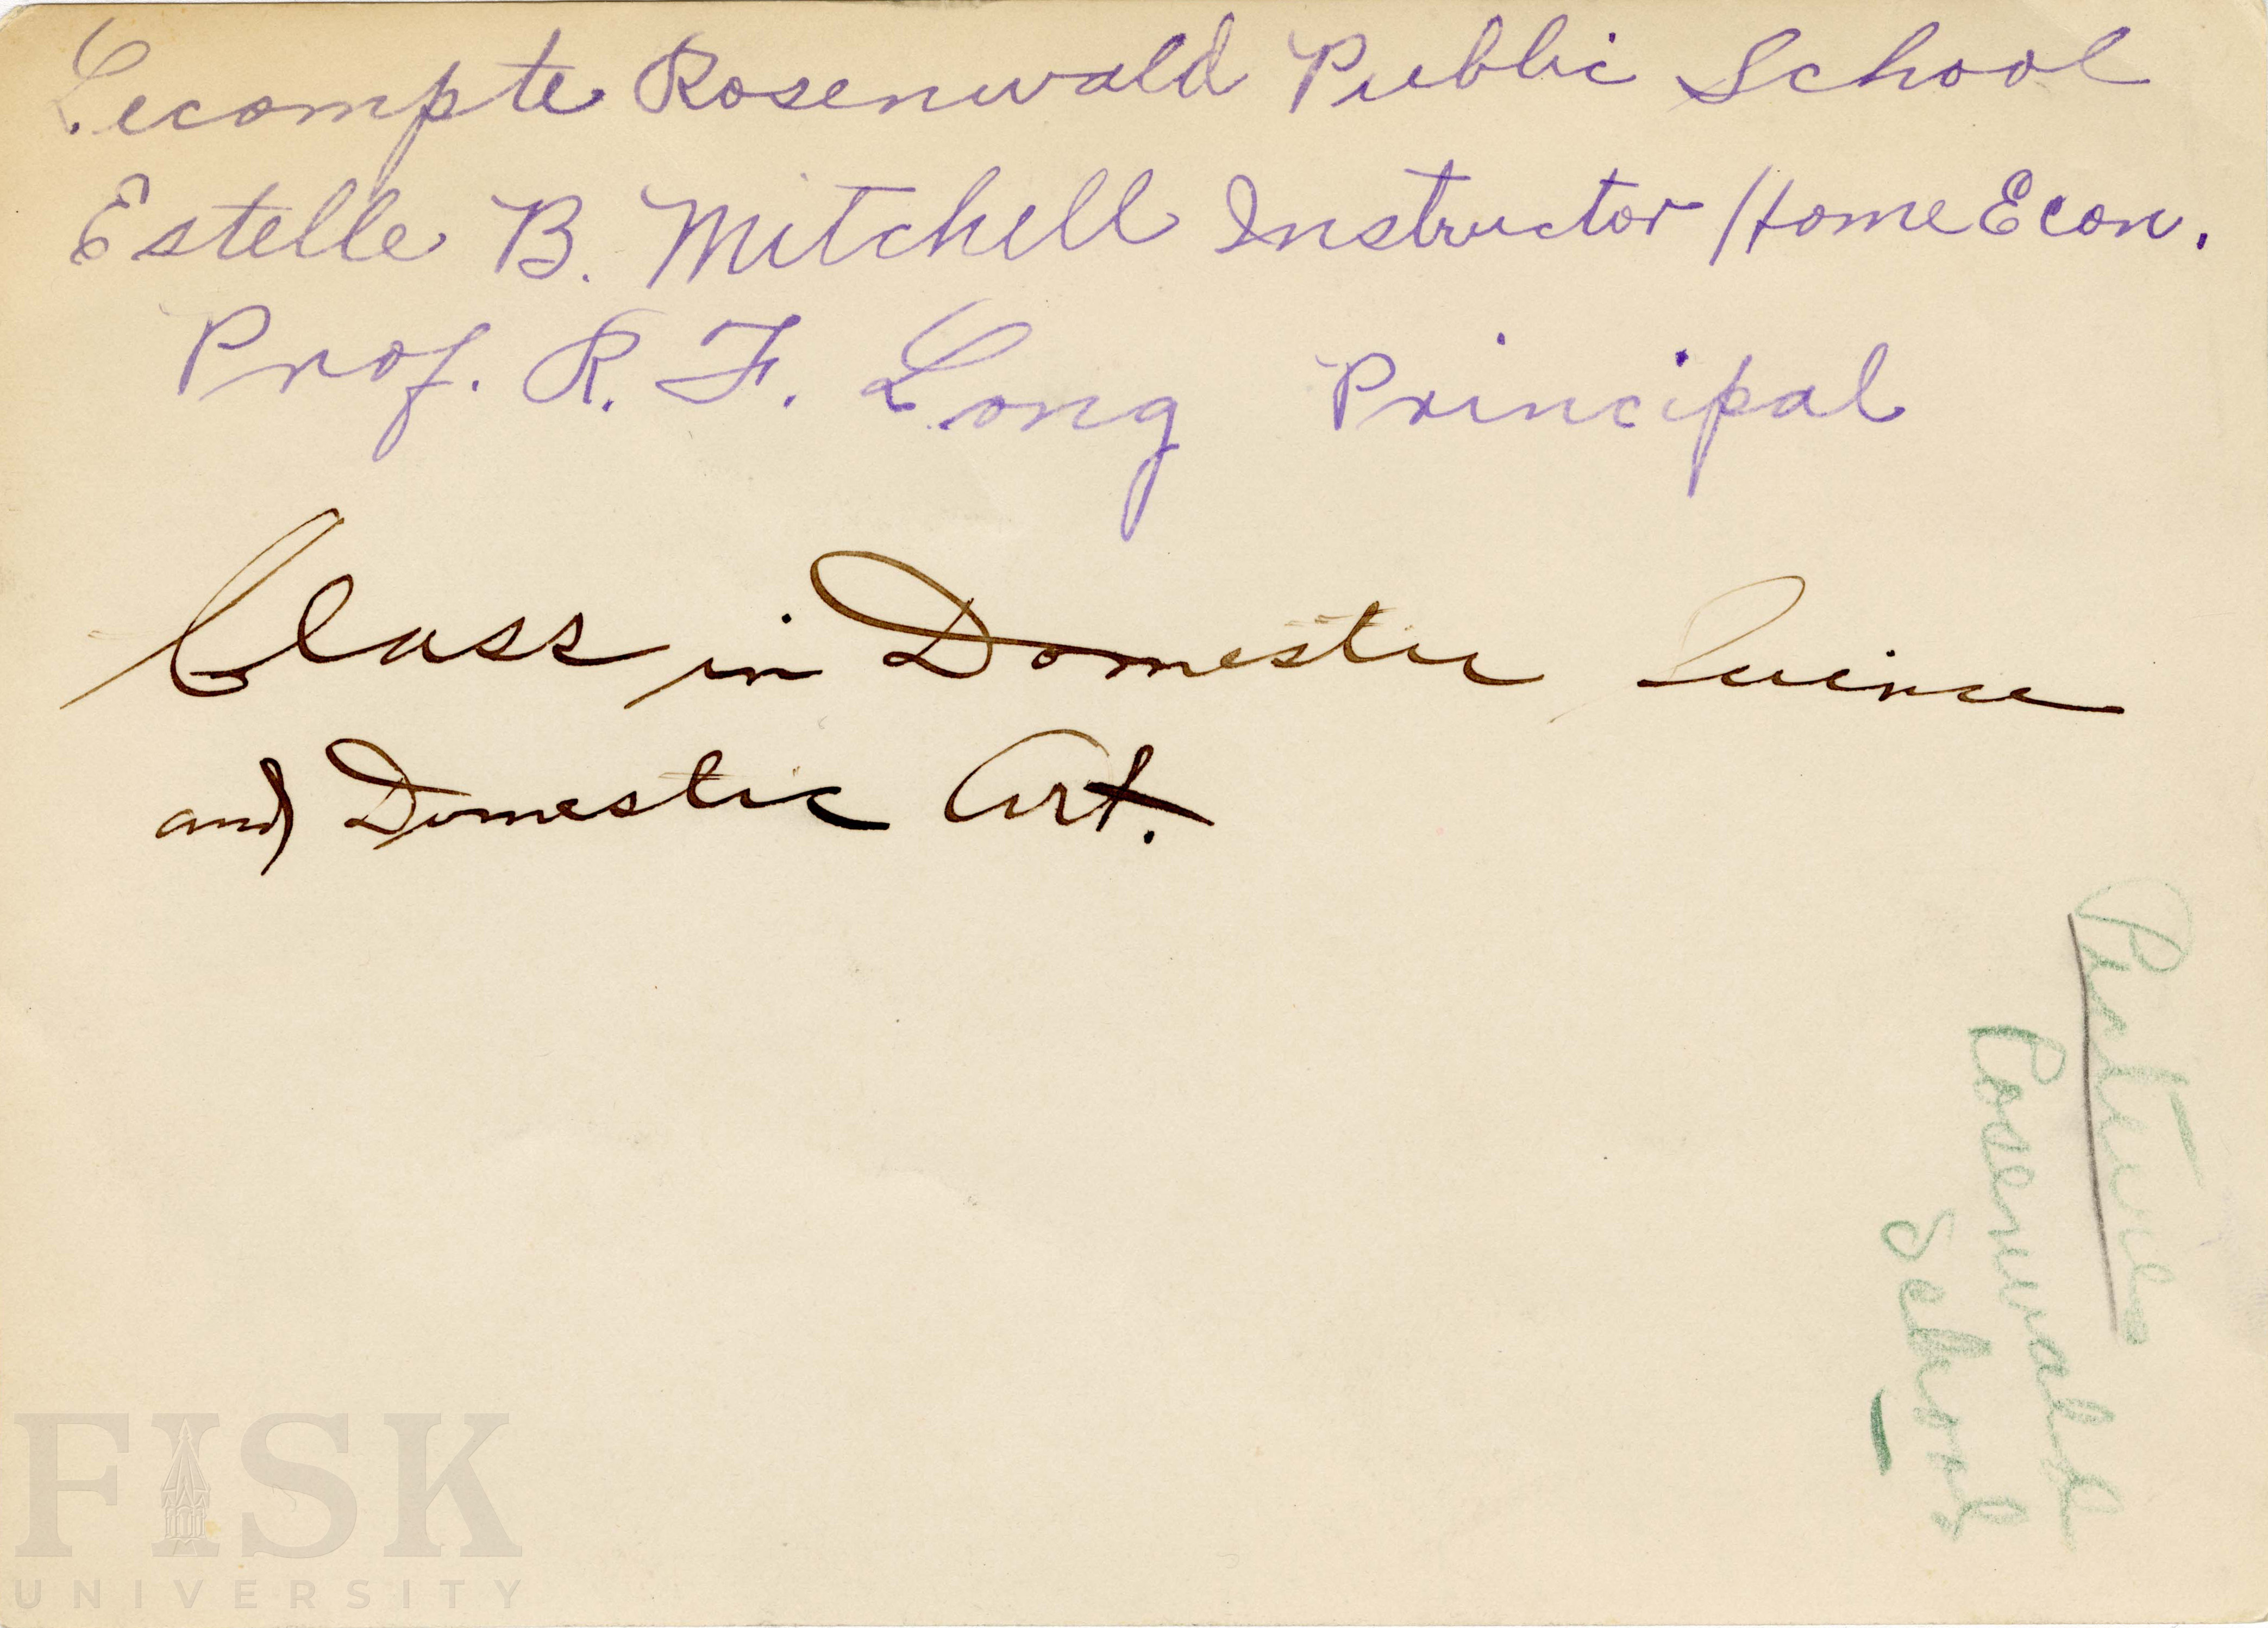 Lecompte Rosenwald Public School
Estelle B. Mitchell Instructor Home Econ.
Prof. R. F. Long Principal
Class in Domestic Science
and Domestic Art.
Picture
Rosenwald
School
FISK
UNIVERSITY